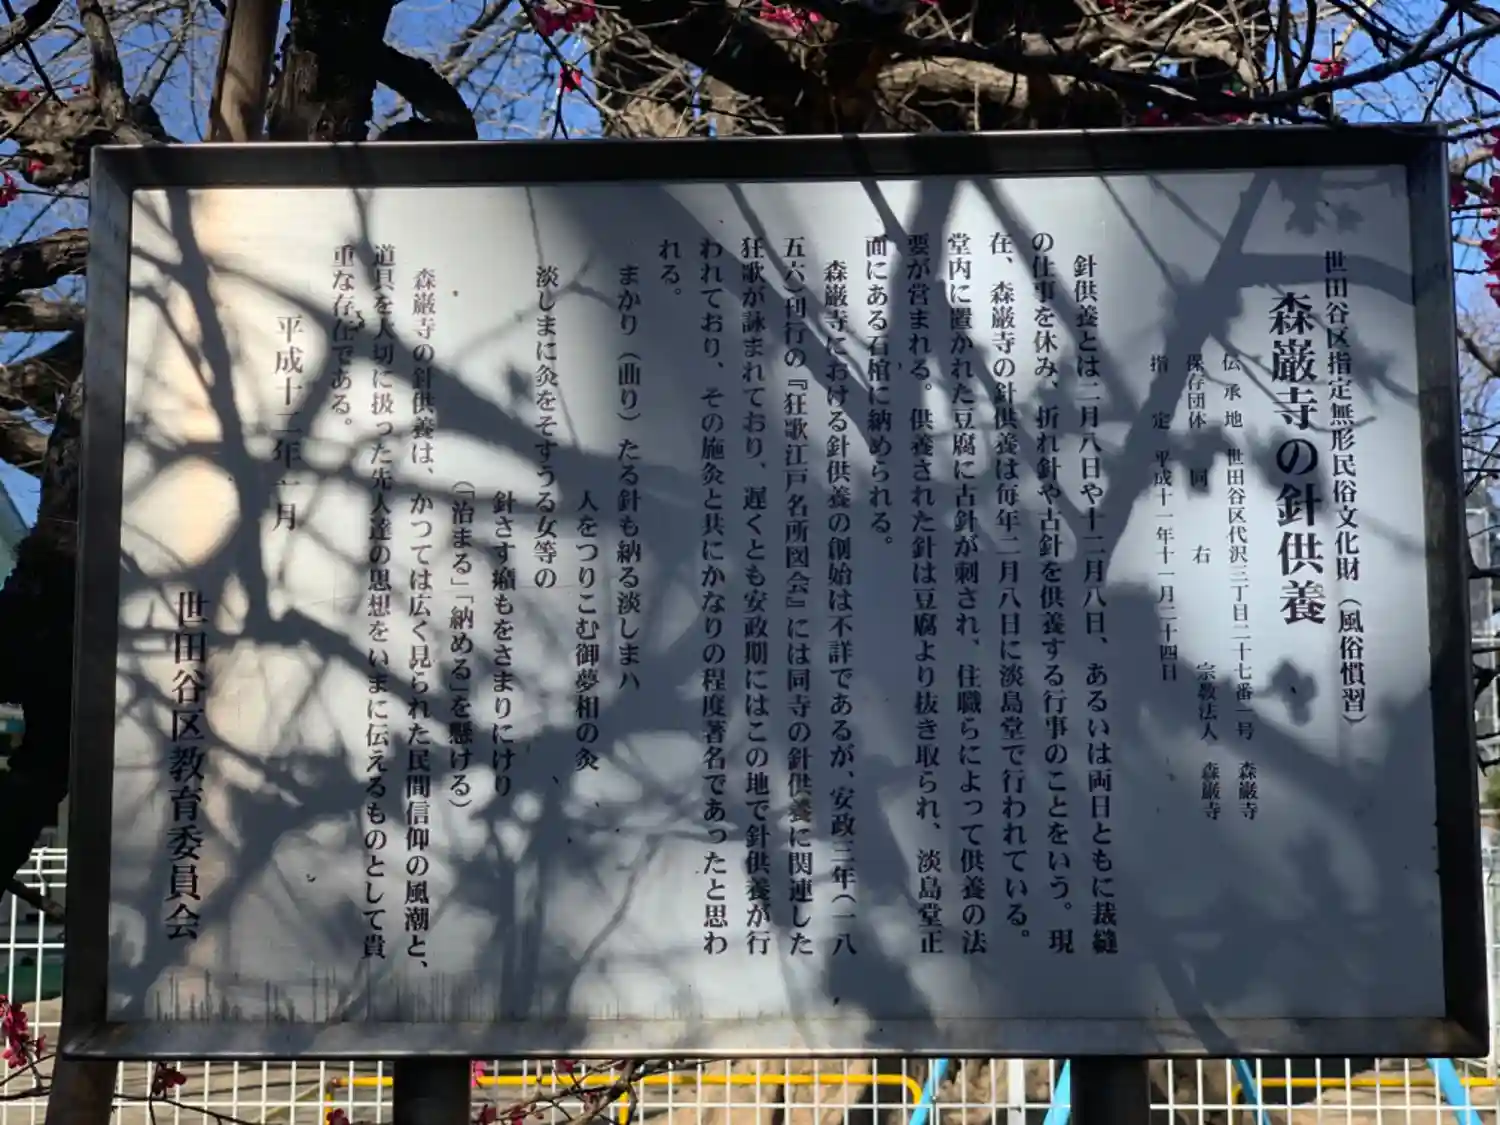 世田谷区指定無形民俗文化財（風俗慣習）
森巌寺の針供養
伝承地　世田谷区代沢三丁目二十七番一号　森巌寺
保存団体　同　右　宗教法人　森巌寺
指　定　平成十一年十一月二十四日
針供養とは二月八日や十二月八日、あるいは両日ともに裁縫
の仕事を休み、折れ針や古針を供養する行事のことをいう。現
在、森巌寺の針供養は毎年二月八日に淡島堂で行われている。
堂内に置かれた豆腐に古針が刺され、住職らによって供養の法
要が営まれる。供養された針は豆腐より抜き取られ、淡島堂正
面にある石棺に納められる。
森巌寺における針供養の創始は不詳であるが、安政三年（一八
五六）刊行の『狂歌江戸名所図会』には同寺の針供養に関連した
狂歌が詠まれており、遅くとも安政期にはこの地で針供養が行
われており、その施灸と共にかなりの程度著名であったと思わ
れる。
まかり（曲り）たる針も納る淡しまハ
人をつりこむ御夢相の灸
淡しまに灸をそすうる女等の
針さす癪もをさまりにけり
（「治まる」「納める」を懸ける）
森巌寺の針供養は、かつては広く見られた民間信仰の風潮と、
道具を大切に扱った先人達の思想をいまに伝えるものとして貴
重な存在である。
平成十二年一月
世田谷区教育委員会